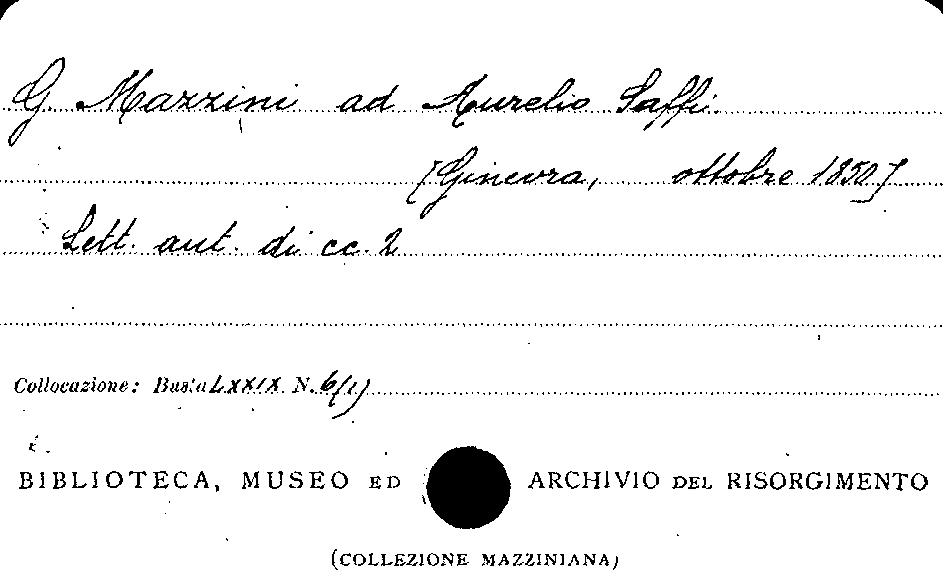 G. Mazzini ad Aurelio Saffi.
[Ginevra, ottobre 1850]
Lett. aut. di cc. 2
Collocazione: Busta LXXIX N. 6/(1)
BIBLIOTECA, MUSEO ED ARCHIVIO DEL RISORGIMENTO
(COLLEZIONE MAZZINIANA)